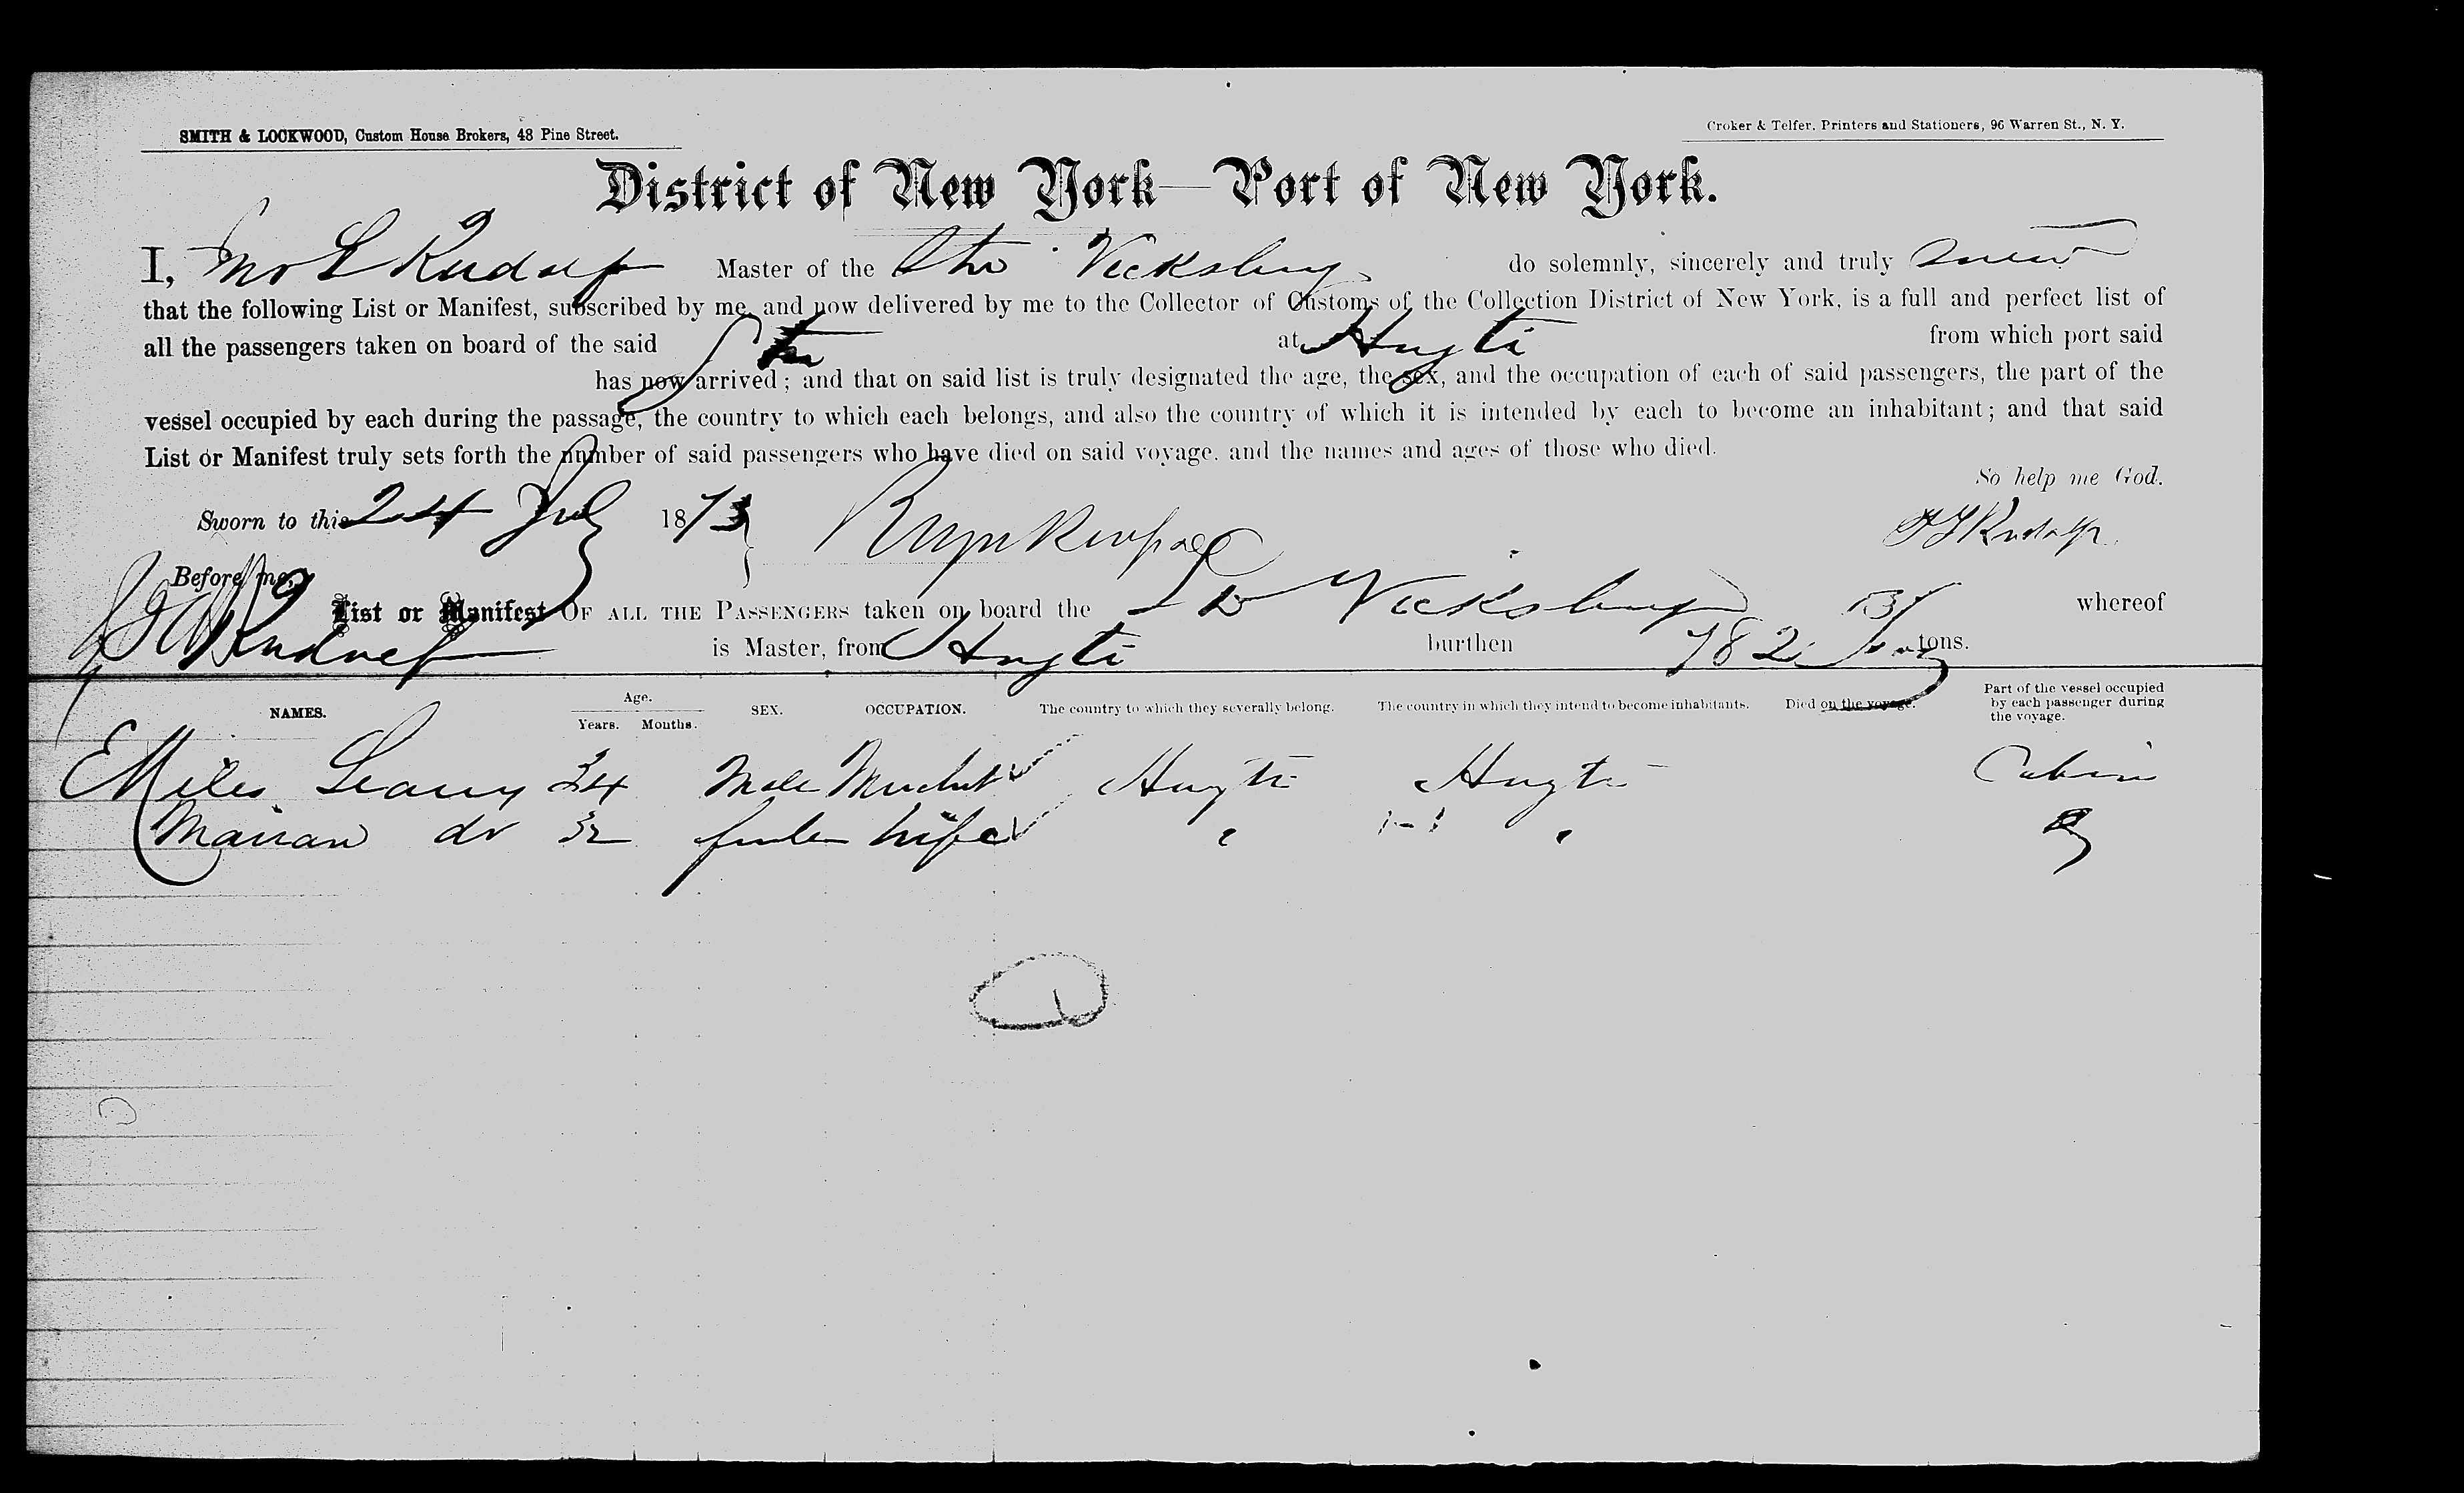 SMITH & LOCKWOOD, Custom House Brokers, 48 Pine Street.
Croker & Telfer, Printers and Stationers, 96 Warren St., N. Y.
District of New York—Port of New York.
I, Rudolf Master of the Str Vicksburg do solemnly, sincerely and truly swear
that the following List or Manifest, subscribed by me, and now delivered by me to the Collector of Customs of the Collection District of New York, is a full and perfect list of
all the passengers taken on board of the said Str at Hayti from which port said
has now arrived; and that on said list is truly designated the age, the sex, and the occupation of each of said passengers, the part of the
vessel occupied by each during the passage, the country to which each belongs, and also the country of which it is intended by each to become an inhabitant; and that said
List or Manifest truly sets forth the number of said passengers who have died on said voyage, and the names and ages of those who died.
So help me God.
Sworn to this 24 July 1873 Rudolf
Before me,
List or Manifest OF ALL THE PASSENGERS taken on board the Str Vicksburg whereof
is Master, from Hayti burthen 782 tons.
NAMES. Age. Years. Months. SEX. OCCUPATION. The country to which they severally belong. The country in which they intend to become inhabitants. Died on the voyage. Part of the vessel occupied by each passenger during the voyage.
Miles 34 Male Merchant Hayti Hayti Cabin
Marian do 32 female wife " "